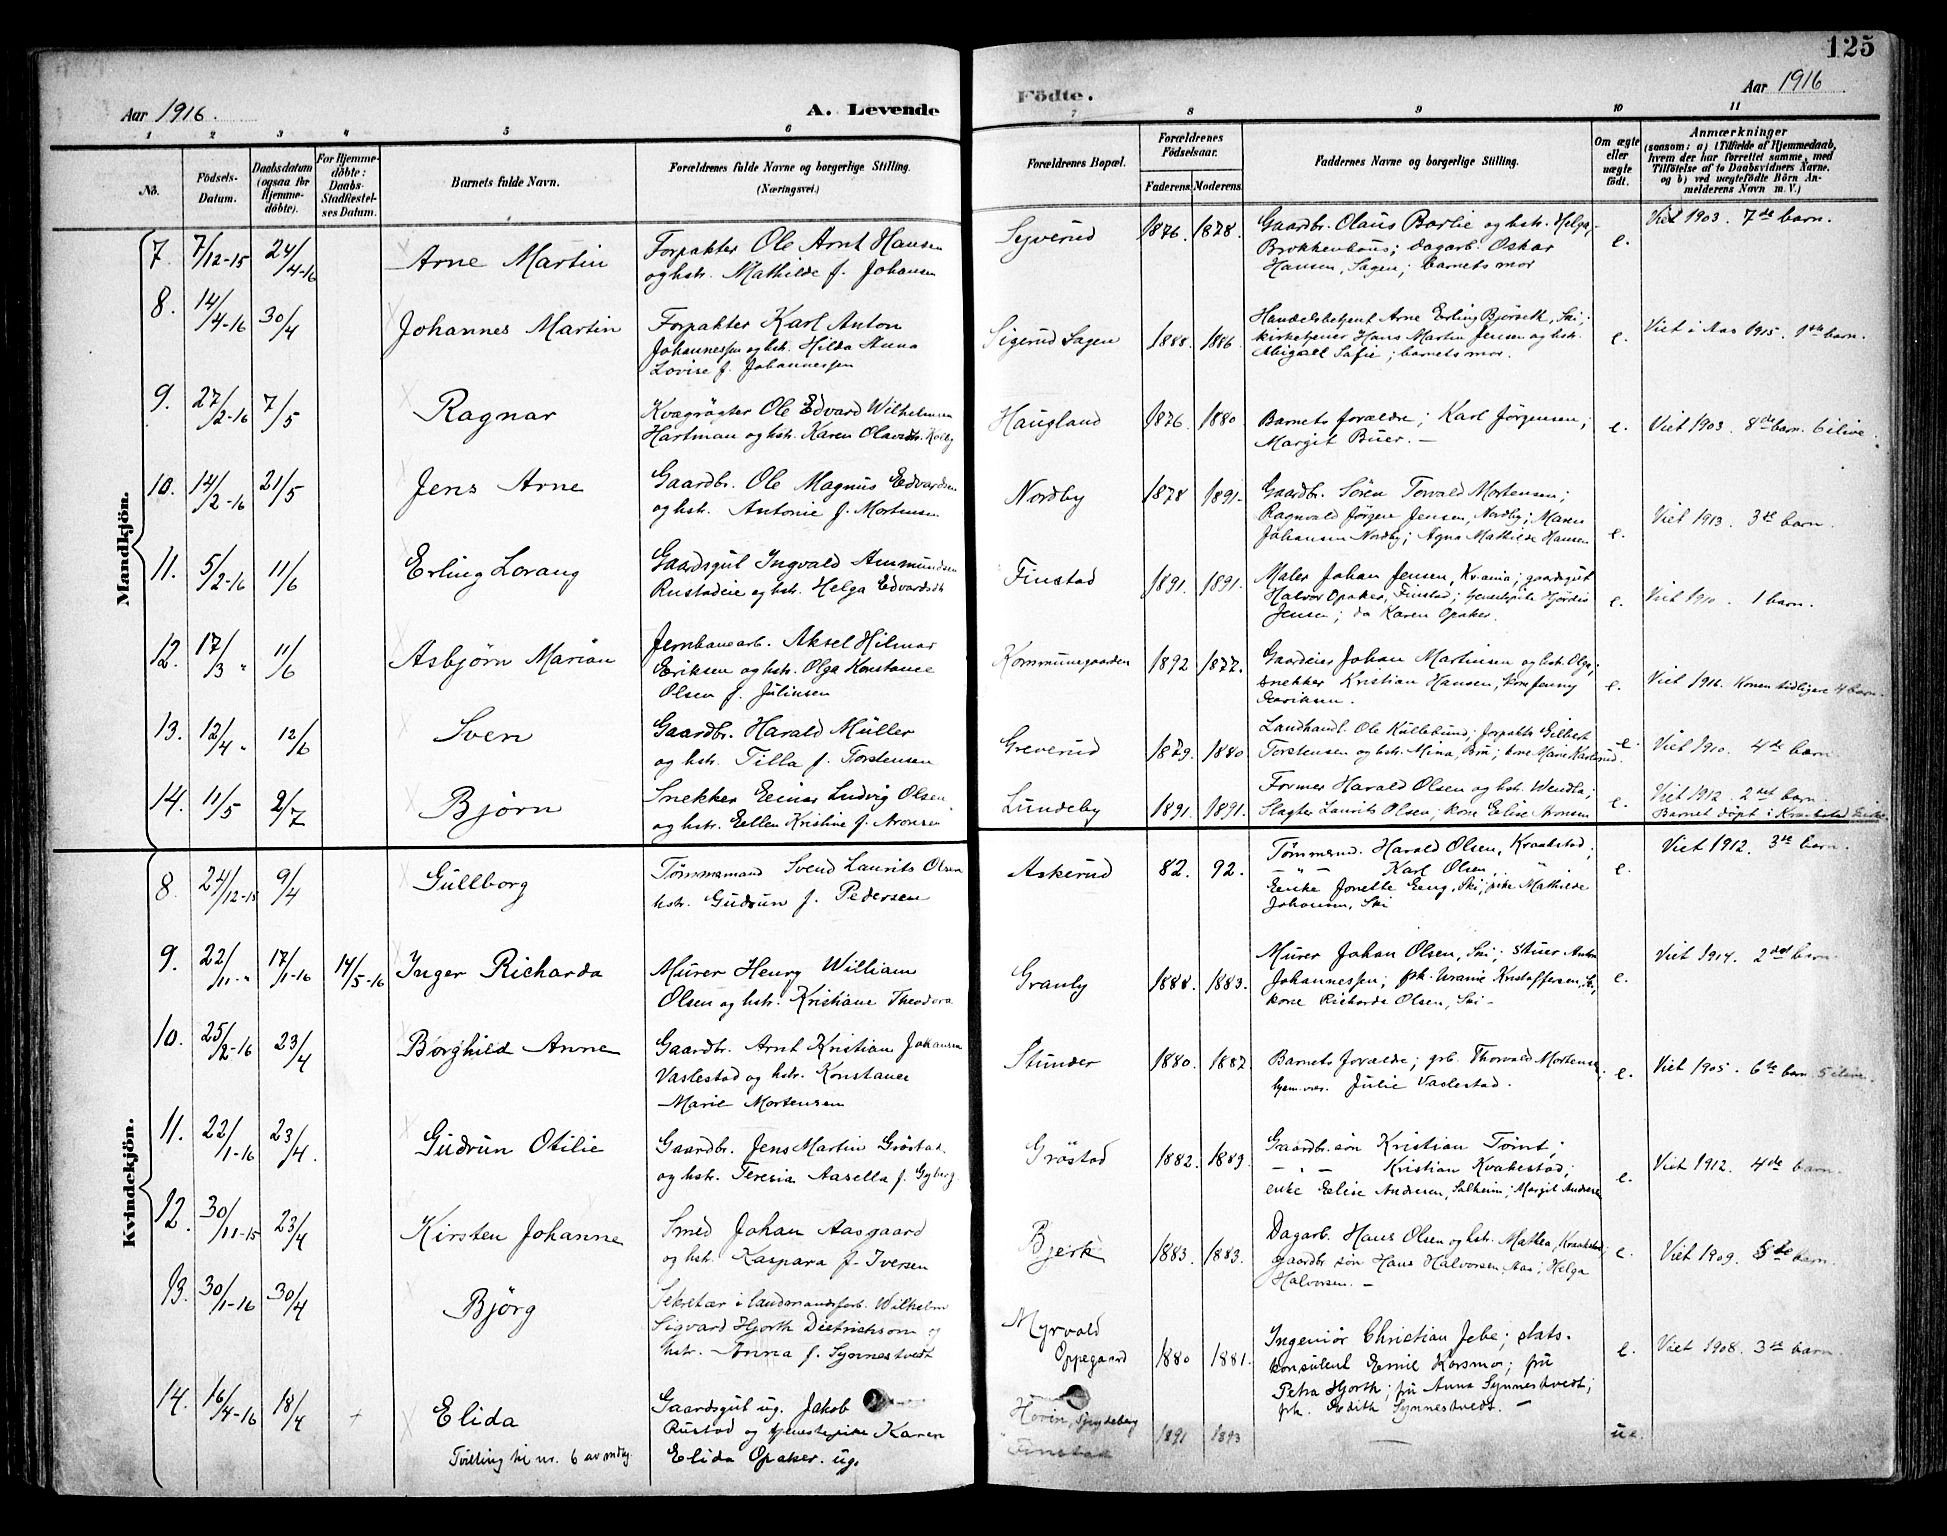 125
Aar 1916.
A. Levende
Födte.
Aar 1916
1 2 3 4 5 6 7 8 9 10 11
No.
Födsels-
Datum.
Daabsdatum
(ogsaa for
Hjemme-
döbte).
For Hjemme-
döbte:
Daabs-
Stadfestel-
ses Datum.
Barnets fulde Navn.
Forældrenes fulde Navne og borgerlige Stilling.
(Næringsvei.)
Forældrenes Bopæl.
Forældrenes
Födselsaar.
Faderens. Moderens.
Faddernes Navne og borgerlige Stilling.
Om ægte
eller
uægte
födt.
Anmærkninger
(saasom: a) i Tilfælde af Hjemmedaab,
hvem der har forrettet samme, med
Tilföielse af to Daabsvidners Navne,
og b) ved uægtefödte Börn An-
melderens Navn m. V.)
Mandkjön.
7. 7/12-15 24/4-16 Arne Martin
Forpakter Ole Arnt Hansen
og hstr. Mathilde f. Johansen
Syverud 1876. 1878.
Gaardbr. Olaus Barlie og hst. Helga,
Brokkenhous; dagarb. Oskar
Hansen, Sagen; barnets mor
e. Viet 1903. 7de barn.
8. 14/4-16 30/4 Johannes Martin
Forpakter Karl Anton
Johannessen og hst. Hilda Anna
Lovise f. Johannessen
Sigerud Sagen 1888. 1886
Handelsbetjent Arne Erling Bjørseth, Ski;
kirketjener Hans Martin Jensen og hst.
Abigael Sofie; barnets mor.
e. Viet i Aas 1915. 1ste barn.
9. 27/2-16 7/5 Ragnar
Kvægrøgter Ole Edvard Wilhelmsen
Hartman og hst. Karen
Haugland 1876. 1880
Barnets forældre; Karl Jörgensen;
Margit Buer. —
e. Viet 1903. 8de barn. 6 ilive.
10. 14/2-16 21/5 Jens Arne
Gaardbr. Ole Magnus Edvardsen
og hst. Antonie f. Mortensen
Nordby 1878 1891.
Gaardbr. Sören Torvald Mortensen;
Ragnvald Jörgen Jensen, Nordby; Maren
Johansen Nordby; Agna Mathilde Hansen
e. Viet 1913. 3de barn.
11. 5/2-16 11/6 Erling Lorang
Gaardsgut Ingvald Ammundsen
Rustadeie og hst. Helga Edvardsdt
Finstad 1891. 1891.
Maler Johan Jensen, Kr.ania; gaardsgut
Halvor Opaker, Finstad; tjenestepike Hjördis
Jensen; do Karen Opaker.
e. Viet 1910. 1 barn.
12. 17/3 " 11/6 Asbjørn Marian
Jernbanearb. Aksel Hilmar
Eriksen og hst. Olga Konstance
Olsen f. Julinsen
Kommunegaarden 1892 1877.
Gaardeier Johan Martinsen og hst. Olga;
snekker Kristian Hansen, kone Jenny
Henriksen.
e. Viet 1916. Konen tidligere 4 barn.
13. 12/4 " 12/6 Sven
Gaardbr. Harald Müller
og hst. Tilla f. Torstensen
Greverud 1879. 1880
Landhandl. Ole Kullebund; forpakter Gilbert
Torstensen og hst. Mina, Bru; kone Marie Karlsrud.
e. Viet 1910. 4de barn
14. 11/5 2/7 Bjørn
Snekker Einar Ludvig Olsen
og hst. Ellen Kristine f. Aronsen
Lundeby 1891. 1891.
Former Harald Olsen og hst. Wendla;
Slagter Laurits Olsen; kone Elise Aronsen
e. Viet 1912. 2det barn.
Barnet døpt i Kraakstad kirke
Kvindekjön.
8. 24/12-15 9/4 Gullborg
Tömmermand Svend Laurits Olsen
hst. Gudrun f. Pedersen
Askerud 82. 92.
Tømmermd. Harald Olsen, Kraakstad;
— " — Karl Olsen, "
Enke Jonette Eeng, Ski; pike Mathilde
Johansen, Ski
e. Viet 1912. 3de barn.
9. 22/11-" 17/1-16 14/5-16 Inger Richarda
Murer Henry William
Olsen og hst. Kristiane Theodora
Granby 1888. 1883.
Murer Johan Olsen, Ski; stuer Anton
Johannessen; frk. Uranie Kristoffersen, Ski;
kone Richarda Olsen, Ski —
e. Viet 1914. 2det barn.
10. 25/2-16 23/4 Borghild Anne
Gaardbr. Arnt Kristian Johansen
Vaslestad og hst. Konstanse
Marie Mortensen
Stunder 1880. 1887.
Barnets forældre; grb. Thorvald Mortensen
hjemmev. Julie Vaslestad.
e. Viet 1905. 6te barn 5 ilive.
11. 22/1-16 23/4. Gudrun Otilie
Gaardbr. Jens Martin Gröstad
og hst. Teresia Aasella f. Gyberg
Gröstad 1882. 1889.
Gaardbr.sön Kristian Tömt;
— " — Kristian Kvakestad;
enke Elise Andersen, Solheim; Margit Andersen
e. Viet 1912. 4de barn.
12. 30/11-15 23/4 Kirsten Johanne
Smed Johan Aasgaard
og hst. Kaspara f. Iversen
Bjerk 1883. 1883.
Dagarb. Hans Olsen og hst. Mathea, Kraakstad;
gaardbr sön Hans Halvorsen, Aas; Helga
Halvorsen. —
e. Viet 1909. 5te barn.
13. 30/1-16 30/4 Bjørg
Sekretær i landmandsforb. Wilhelm
Sigvard Hjorth Dietrichson og
hst. Anna f. Synnestvedt
Myrvold
Oppegaard 1880 1881.
Ingeniör Christian Jebe; stats-
konsulent Emil Korsmo; fru
Petra Hjorth; fru Anna Synnestvedt;
frk. Edith Synnestvedt. —
e. Viet 1908. 3de barn.
14. 16/4-16 18/4 + Elida
Tvilling til nr. 6 av mdkj.
Gaardsgut ug. Jakob
Rustad og tjenestepike Karen
Elida Opaker. ug.
Hovin, Spydeberg
Finstad 1891 1893
— u.e.